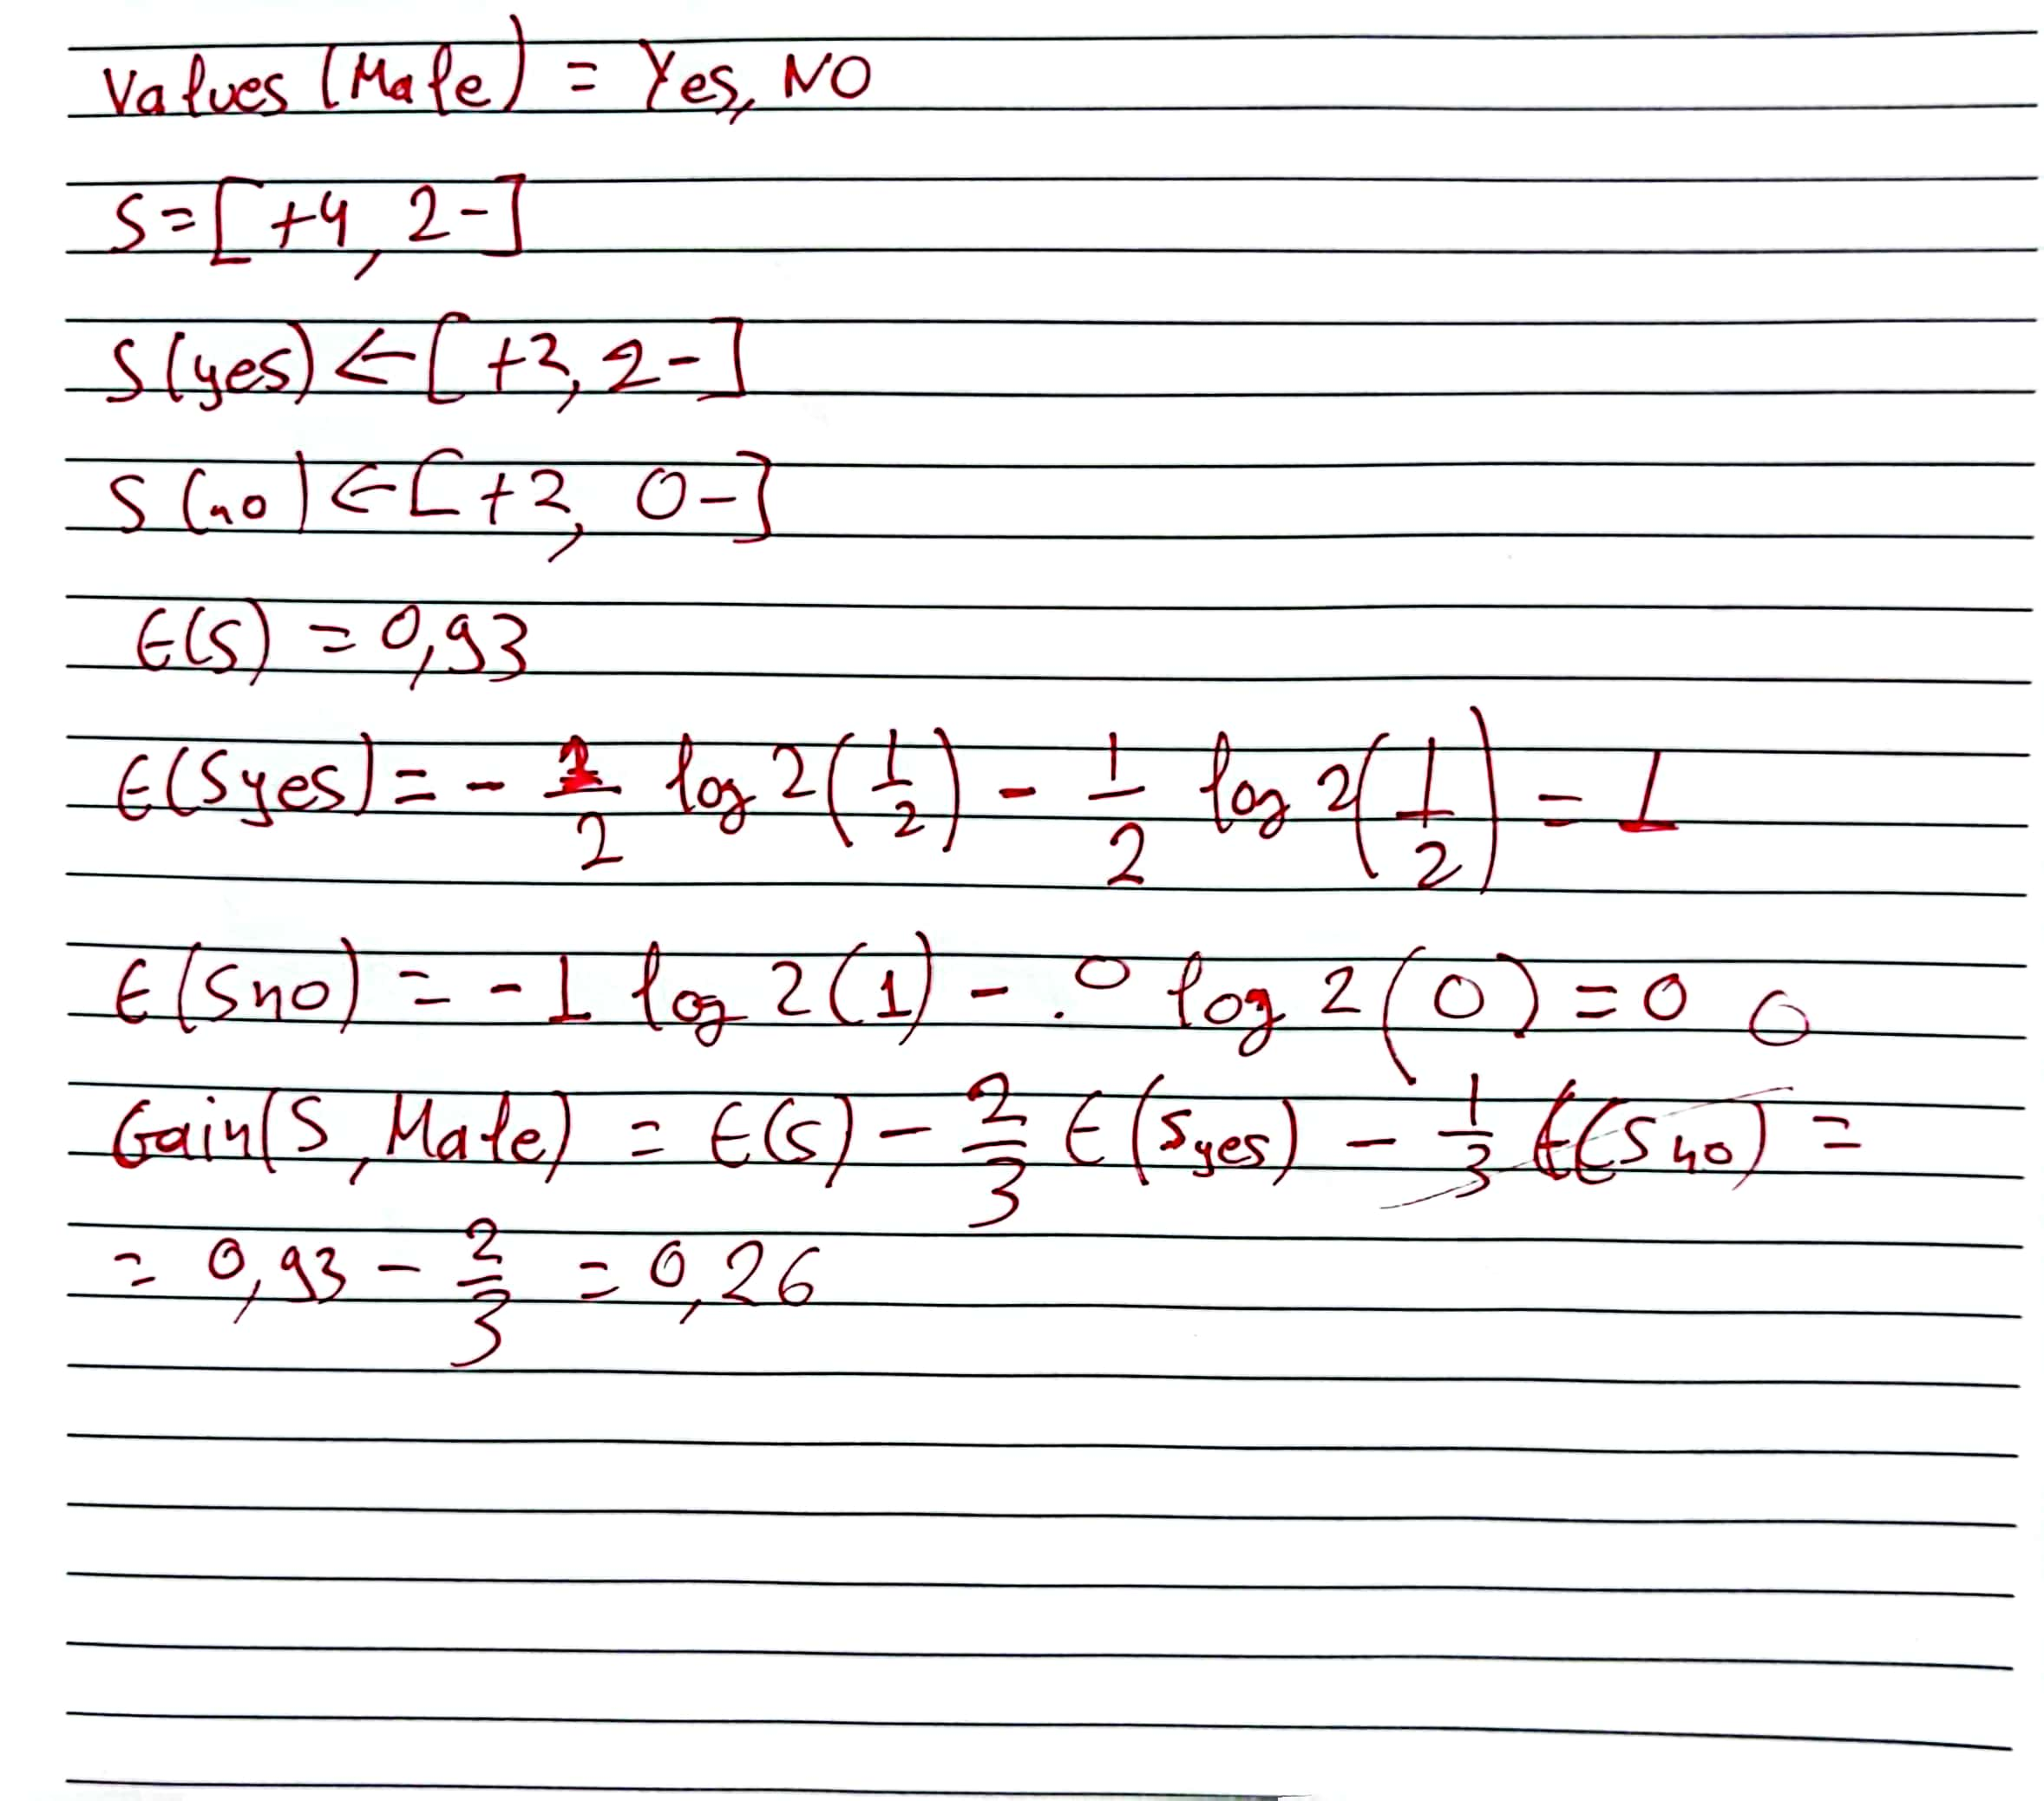 Values (Male) = Yes, NO
S = [ +4, 2- ]
S(yes) ← [ +2, 2- ]
S(no) ← [ +2, 0- ]
E(S) = 0,93
E(Syes) = - 1/2 log2(1/2) - 1/2 log2(1/2) = 1
E(Sno) = -1 log2(1) - 0 log2(0) = 0 0
Gain(S, Male) = E(S) - 2/3 E(Syes) - 1/3 E(Sno) =
= 0,93 - 2/3 = 0,26